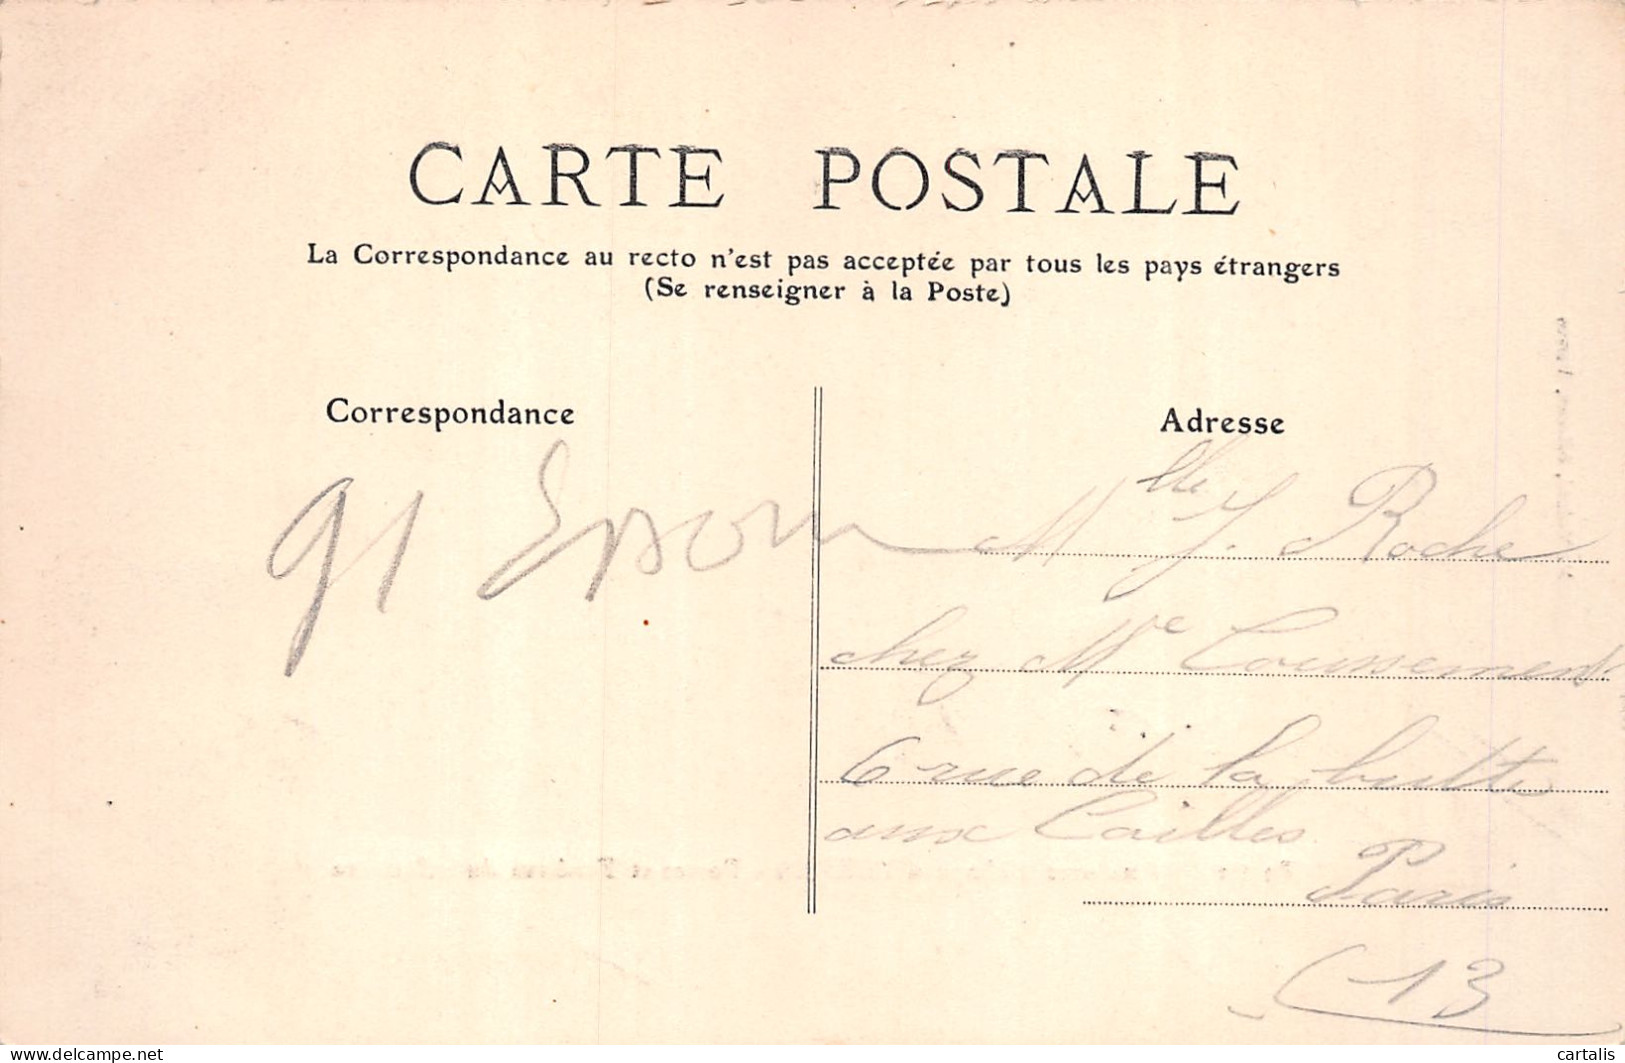 CARTE POSTALE
La Correspondance au recto n'est pas acceptée par tous les pays étrangers
(Se renseigner à la Poste)
Correspondance
91
Adresse
Mlle J. Roche
chez Me Coussement
6 rue de la butte
aux Cailles
Paris
13
cartalis